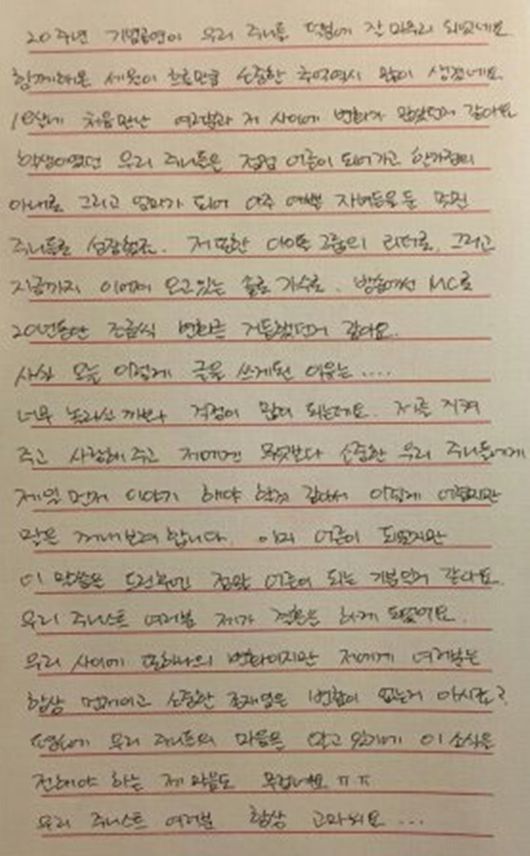 20주년 기념공연이 우리 주니들 덕분에 잘 마무리 되었네요
함께해온 세월이 흐른만큼 소중한 추억역시 많이 생겼네요.
18살에 처음만난 여러분과 저 사이에 변화가 많았던거 같아요
학생이였던 우리 주니들은 점점 어른이 되어가고 한가정의
아내로 그리고 엄마가 되어 아주 예쁜 자녀들을 둔 멋진
주니들로 성장했죠. 저 또한 아이돌 그룹의 리더로, 그리고
지금까지 이어져 오고있는 솔로 가수로, 방송에선 MC로
20년동안 조금씩 변화를 거듭했던거 같아요.
사실 오늘 이렇게 글을 쓰게된 이유는 ....
너무 놀라실까봐 걱정이 많이 되는데요. 저를 지켜
주고 사랑해 주고 저에겐 무엇보다 소중한 우리 주니들에게
제일 먼저 이야기 해야 할것 같아서 이렇게 어렵지만
말은 꺼내보려 합니다. 이미 어른이 되었지만
이 말씀을 드린후엔 정말 어른이 되는 기분인거 같아요.
우리 주니스트 여러분 제가 결혼을 하게 되었어요.
우리 사이에 또하나의 변화이지만 저에게 여러분은
항상 먼저이고 소중한 존재임은 변함이 없는거 아시죠?
누구보다 우리 주니들의 마음을 알고 있기에 이 소식을
전해야 하는 제 마음도 무겁네요 ㅠㅠ
우리 주니스트 여러분 항상 고마워요 ...